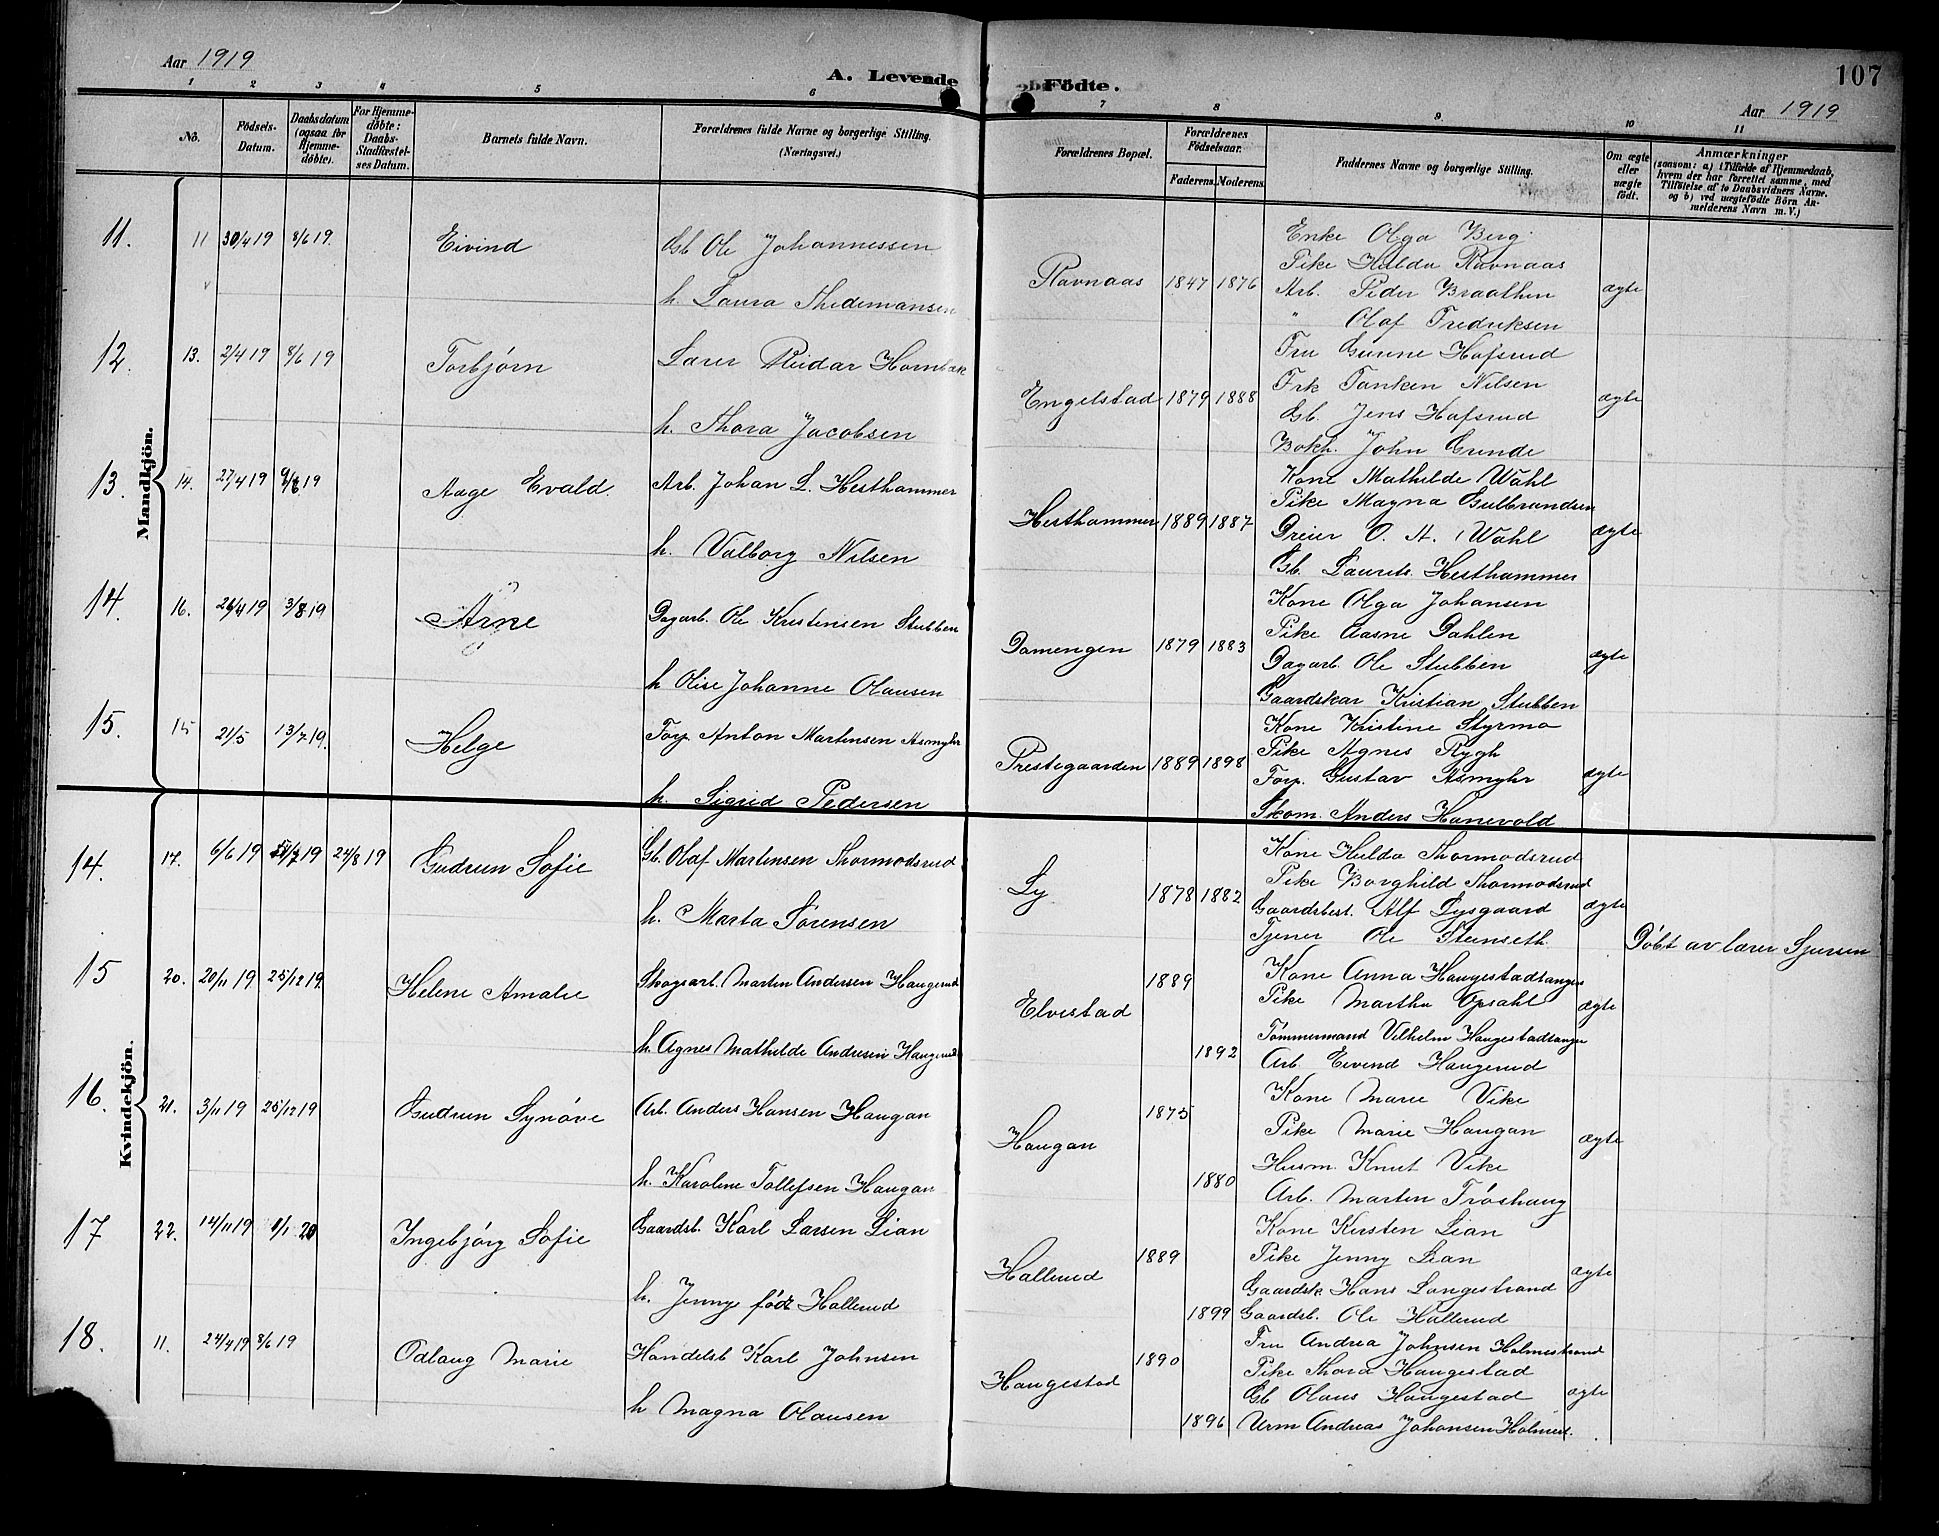 Aar 1919
A. Levende
Födte.
107
Aar 1919
1 2 3 4 5 6 7 8 9 10 11
No.
Födsels-Datum.
Daabsdatum (ogsaa for Hjemmedøbte).
For Hjemmedøbte: Daabs-Stadfæstelses Datum.
Barnets fulde Navn.
Forældrenes fulde Navne og borgerlige Stilling. (Næringsvei.)
Forældrenes Bopæl.
Forældrenes Födselsaar.
Faderens. Moderens.
Faddernes Navne og borgerlige Stilling.
Om ægte eller uægte födt.
Anmærkninger
(saasom: a) i Tilfælde af Hjemmedaab, hvem der har forrettet samme, med Tilföielse af to Daabsvidners Navne. og b) ved uægtefödte Börn Anmelderens Navn m. V.)
Mandkjön.
11. 11 30/4 19 8/6 19. Eivind Gb. Ole Johannessen
h. Laura Thidemansen
Ravnaas 1847 1876 ægte
Enke Olga Berg.
Pike Hulda Ravnaas
Arb. Peder Braathen
" Olaf Fredriksen
12. 13. 2/4 19 8/6 19 Torbjørn Lærer Reidar Hornbæk
h. Thora Jacobsen
Engelstad 1879 1888 ægte
Fru Gunne Hafsrud
Frk Tanken Nilsen
Gb. Jens Hafsrud
Bokh. John Grinde
13. 14. 27/4 19 9/6 19 Aage Evald. Arb. Johan L. Hesthammer
h. Valborg Nilsen
Hesthammer 1889 1887 ægte
Kone Mathilde Wahl
Pike Magna Gulbrandsen
Dreier O. A. Wahl
Gb. Laurits Hesthammer
14. 16. 26/4 19 3/8 19 Arne Dagarb. Ole Kristensen Stubben
h Olise Johanne Olausen
Damengen 1879 1883 ægte
Kone Olga Johansen
Pike Aasne Dahlen
Dagarb. Ole Stubben
Gaardskar Kristian Stubben
15. 15 21/5 13/7 19. Helge Forp Anton Martinsen Asmyhr
h. Sigrid Pedersen
Prestegaarden 1889 1898 ægte
Kone Kristine Styrmo
Pike Agnes Rygh
Forp. Gustav Asmyhr
Skom. Anders Hanevold
Kvindekjön.
14. 17. 6/6 19 /7 19 24/8 19 Gudrun Sofie Gb. Olaf Martinsen Thormodsrud
h. Marta Sørensen
Ly 1878 1882 ægte
Kone Hulda Thormodsrud
Pike Borghild Thormodsrud
Gaardsbest. Alf Lysgaard
Tjener Ole Stenseth.
Døbt av lærer
15 20. 20/11 19 25/12 19. Helene Amalie Skogsarb. Martin Andersen Haugerud
h. Agnes Mathilde Andresen Haugerud
Elvestad 1889 1892 ægte
Kone Anna Haugestadtangen
Pike Martha Opsahl
Tømmermand Vilhelm Haugestadtangen
Arb. Eivind Haugerud
16. 21. 3/11 19 25/12 19 Gudrun Synøve Arb. Anders Hansen Haugan
h. Karoline Tollefsen Haugan
Haugan 1875 1880 ægte
Kone Marie Vike
Pike Marie Haugan
Husm. Knut Vike
Arb. Martin Trøshaug
17 22. 14/11 19 1/1 20 Ingebjørg Sofie Gaardsb. Karl Larsen Lian
h. Jenny født Hallerud
Hallerud 1889 1899 ægte
Kone Kirsten Lian
Pike Jenny Lian
Gaardsk Hans Langestrand
Gaardsb. Ole Hallerud
18. 11. 24/4 19 8/6 19 Odlaug Marie Handelsb Karl Johnsen
h Magna Olausen
Haugestad 1890 1896 ægte
Fru Andrea Johnsen Holmestrand
Pike Thora Haugestad
Gb Olaus Haugestad
Urm Andreas Johansen Holmest.